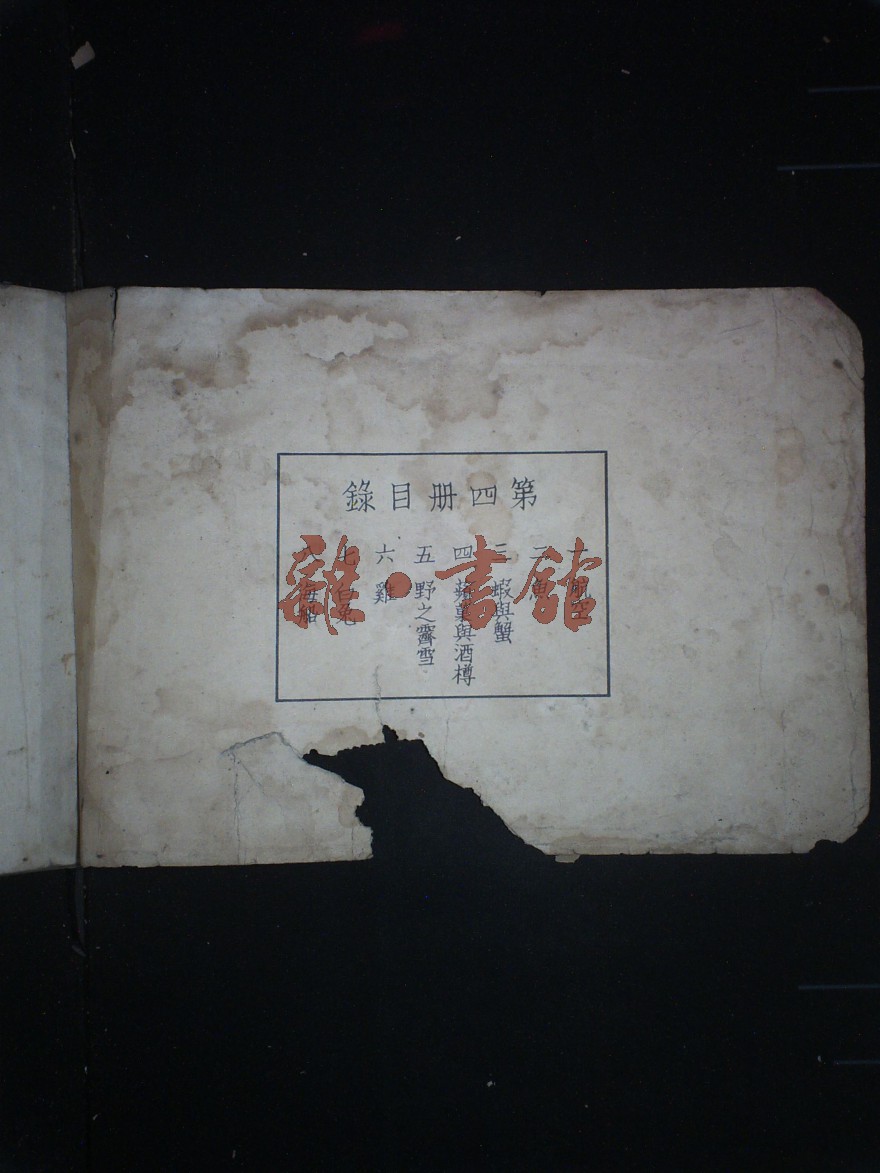 第四册目錄
一 航空
二 魚
三 蝦與蟹
四 蘋菓與酒樽
五 野之霽雪
六 雞
七 白兔
八 海船
雜·書館